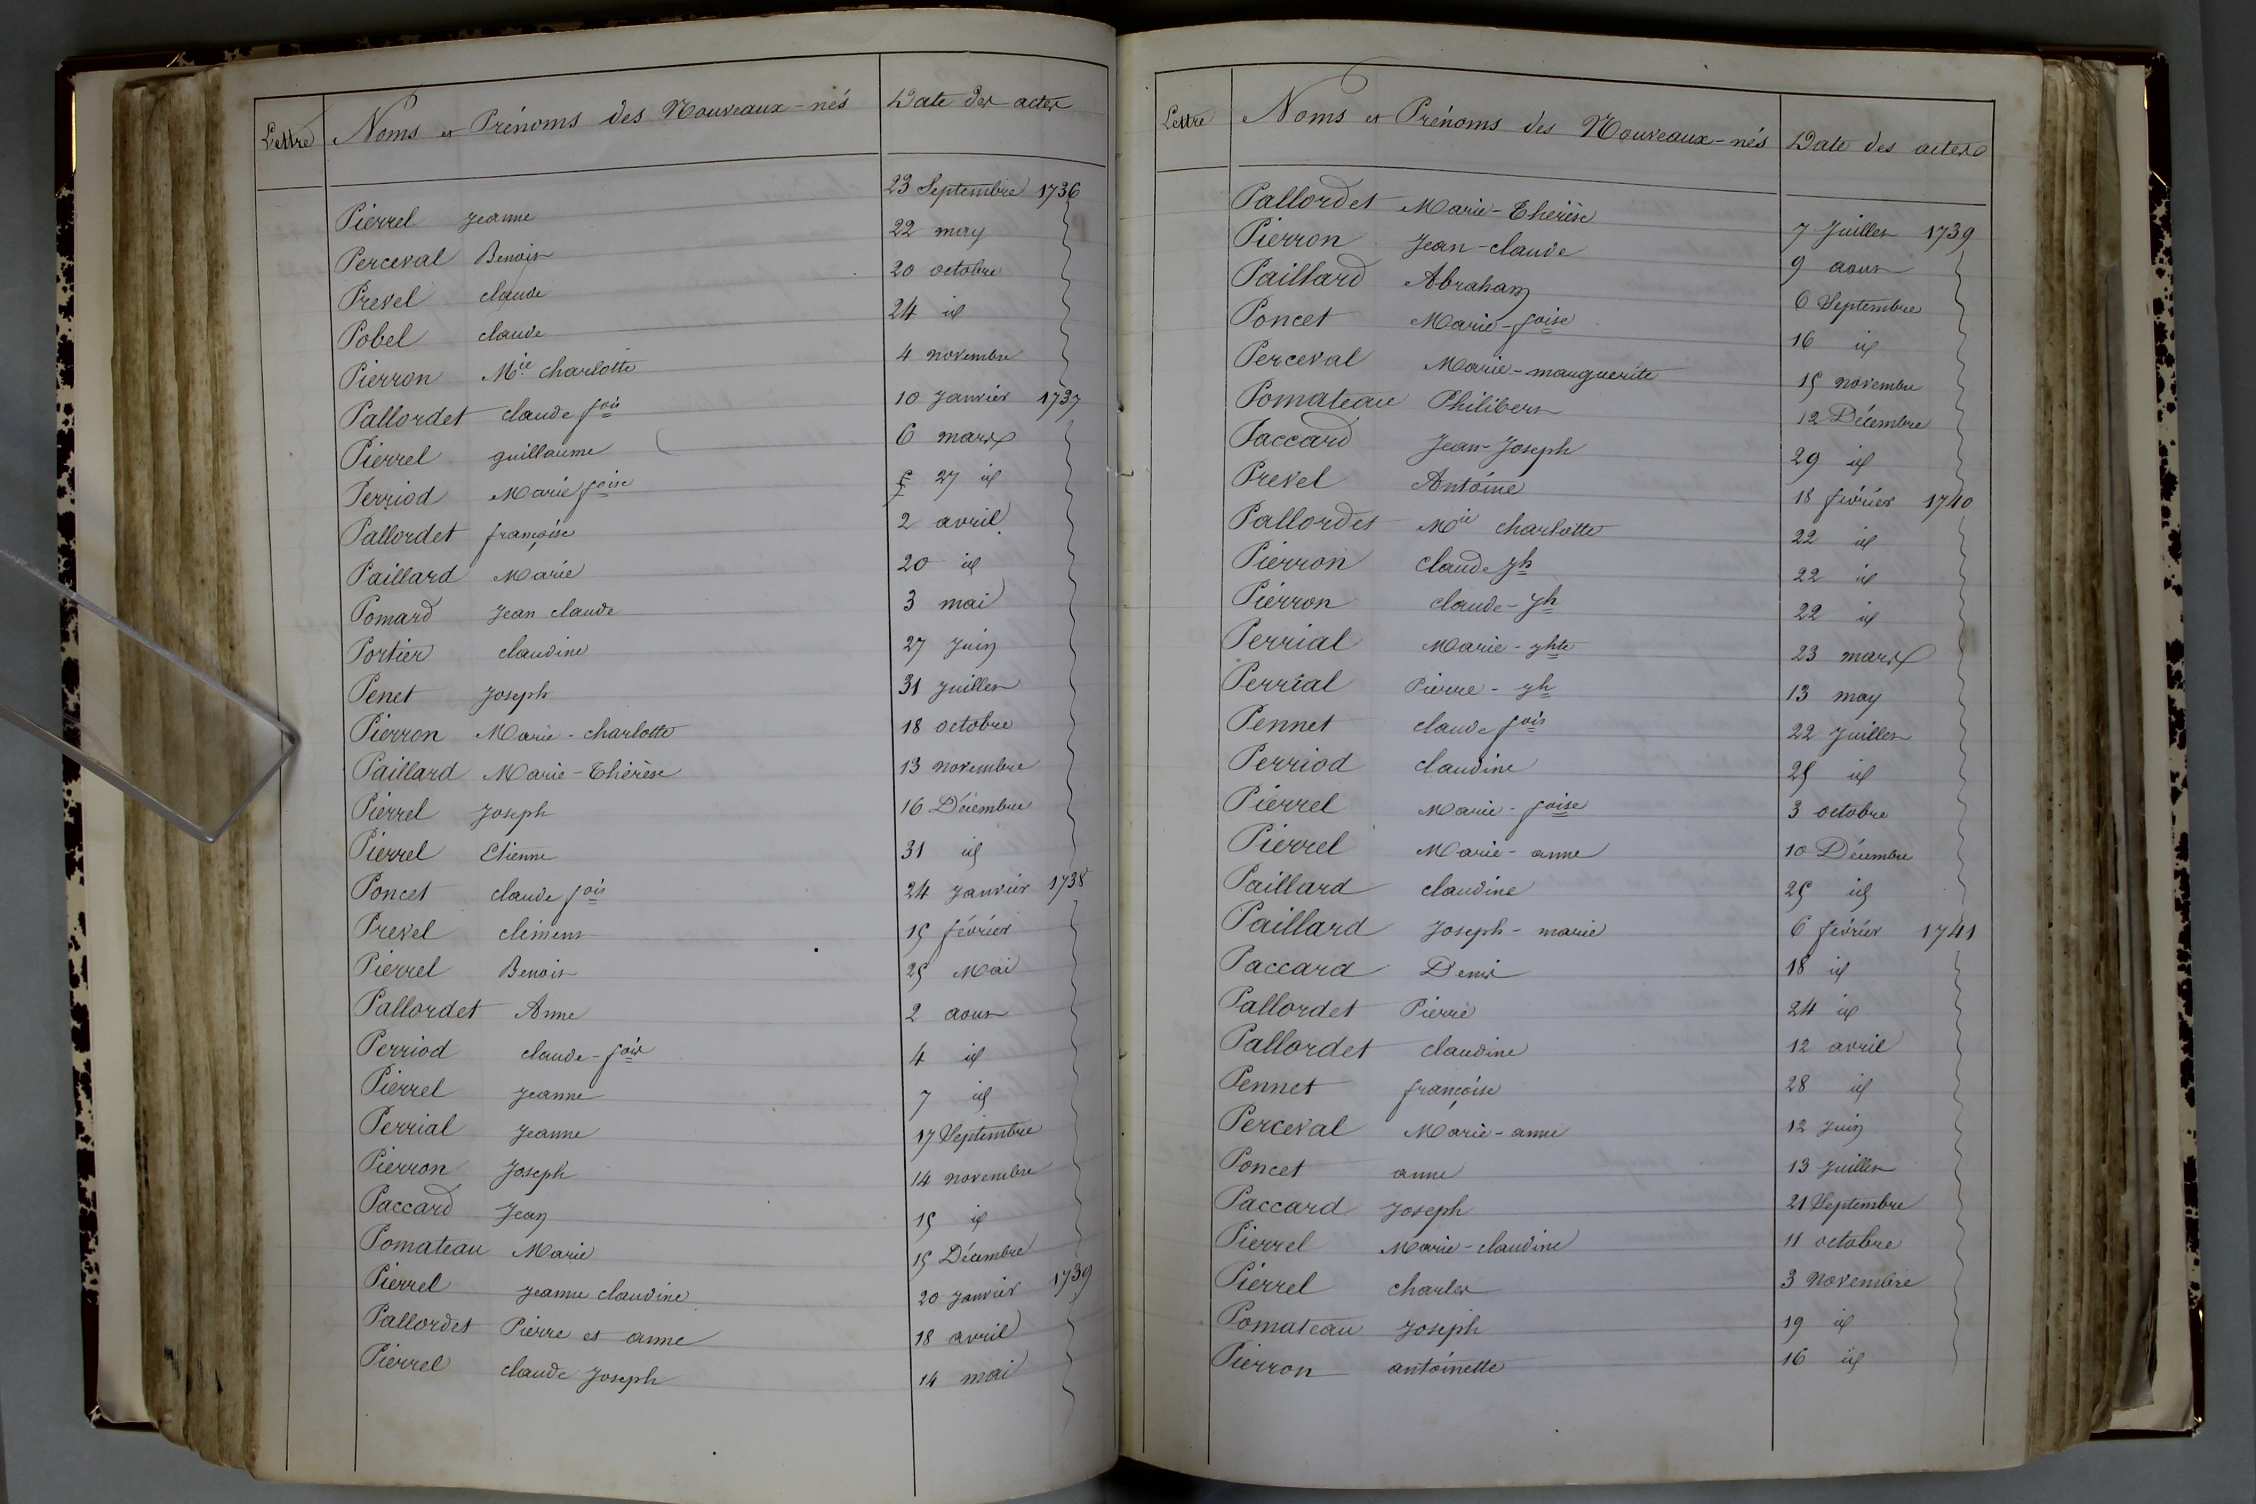 Lettre Noms et Prénoms des Nouveaux-nés Date des actes
Pierrel Jeanne 23 Septembre 1736
Perceval Benoit 22 may
Prevel claude 20 octobre
Pobel claude 24 id
Pierron Mie charlotte 4 novembre
Pallordet claude fois 10 Janvier 1737
Pierrel guillaume 6 mars
Perriod Marie foise 27 id
Pallordet françoise 2 avril
Paillard Marie 20 id
Pomard Jean claude 3 mai
Portier claudine 27 Juin
Penet Joseph 31 Juillet
Pierron Marie-charlotte 18 octobre
Paillard Marie-Thérèse 13 novembre
Pierrel Joseph 16 Décembre
Pierrel Etienne 31 id
Poncet claude fois 24 Janvier 1738
Prevel clément 15 février
Pierrel Benoit 25 Mai
Pallordet Anne 2 aout
Perriod claude-fois 4 id
Pierrel Jeanne 7 id
Perrial Jeanne 17 Septembre
Pierron Joseph 14 novembre
Paccard Jean 15 id
Pomateau Marie 15 Décembre
Pierrel Jeanne claudine 20 Janvier 1739
Pallordet Pierre et anne 18 avril
Pierrel claude Joseph 14 mai
Lettre Noms et Prénoms des Nouveaux-nés Date des actes
Pallordet Marie-Thérèse 7 Juillet 1739
Pierron Jean-claude 9 aout
Paillard Abraham 6 Septembre
Poncet Marie-foise 16 id
Perceval Marie-marguerite 15 novembre
Pomateau Philibert 12 Décembre
Paccard Jean-Joseph 29 id
Prevel Antoine 18 février 1740
Pallordet Mie charlotte 22 id
Pierron claude Jh 22 id
Pierron claude-Jh 22 id
Perrial Marie-Jhte 23 mars
Perrial Pierre-Jh 13 may
Pennet claude fois 22 Juillet
Perriod claudine 25 id
Pierrel Marie-foise 3 octobre
Pierrel Marie-anne 10 Décembre
Paillard claudine 25 id
Paillard Joseph-marie 6 février 1741
Paccard Denis 18 id
Pallordet Pierre 24 id
Pallordet claudine 12 avril
Pennet françoise 28 id
Perceval Marie-anne 12 Juin
Poncet anne 13 Juillet
Paccard Joseph 21 Septembre
Pierrel Marie-claudine 11 octobre
Pierrel charles 3 novembre
Pomateau Joseph 19 id
Pierron antoinette 16 id